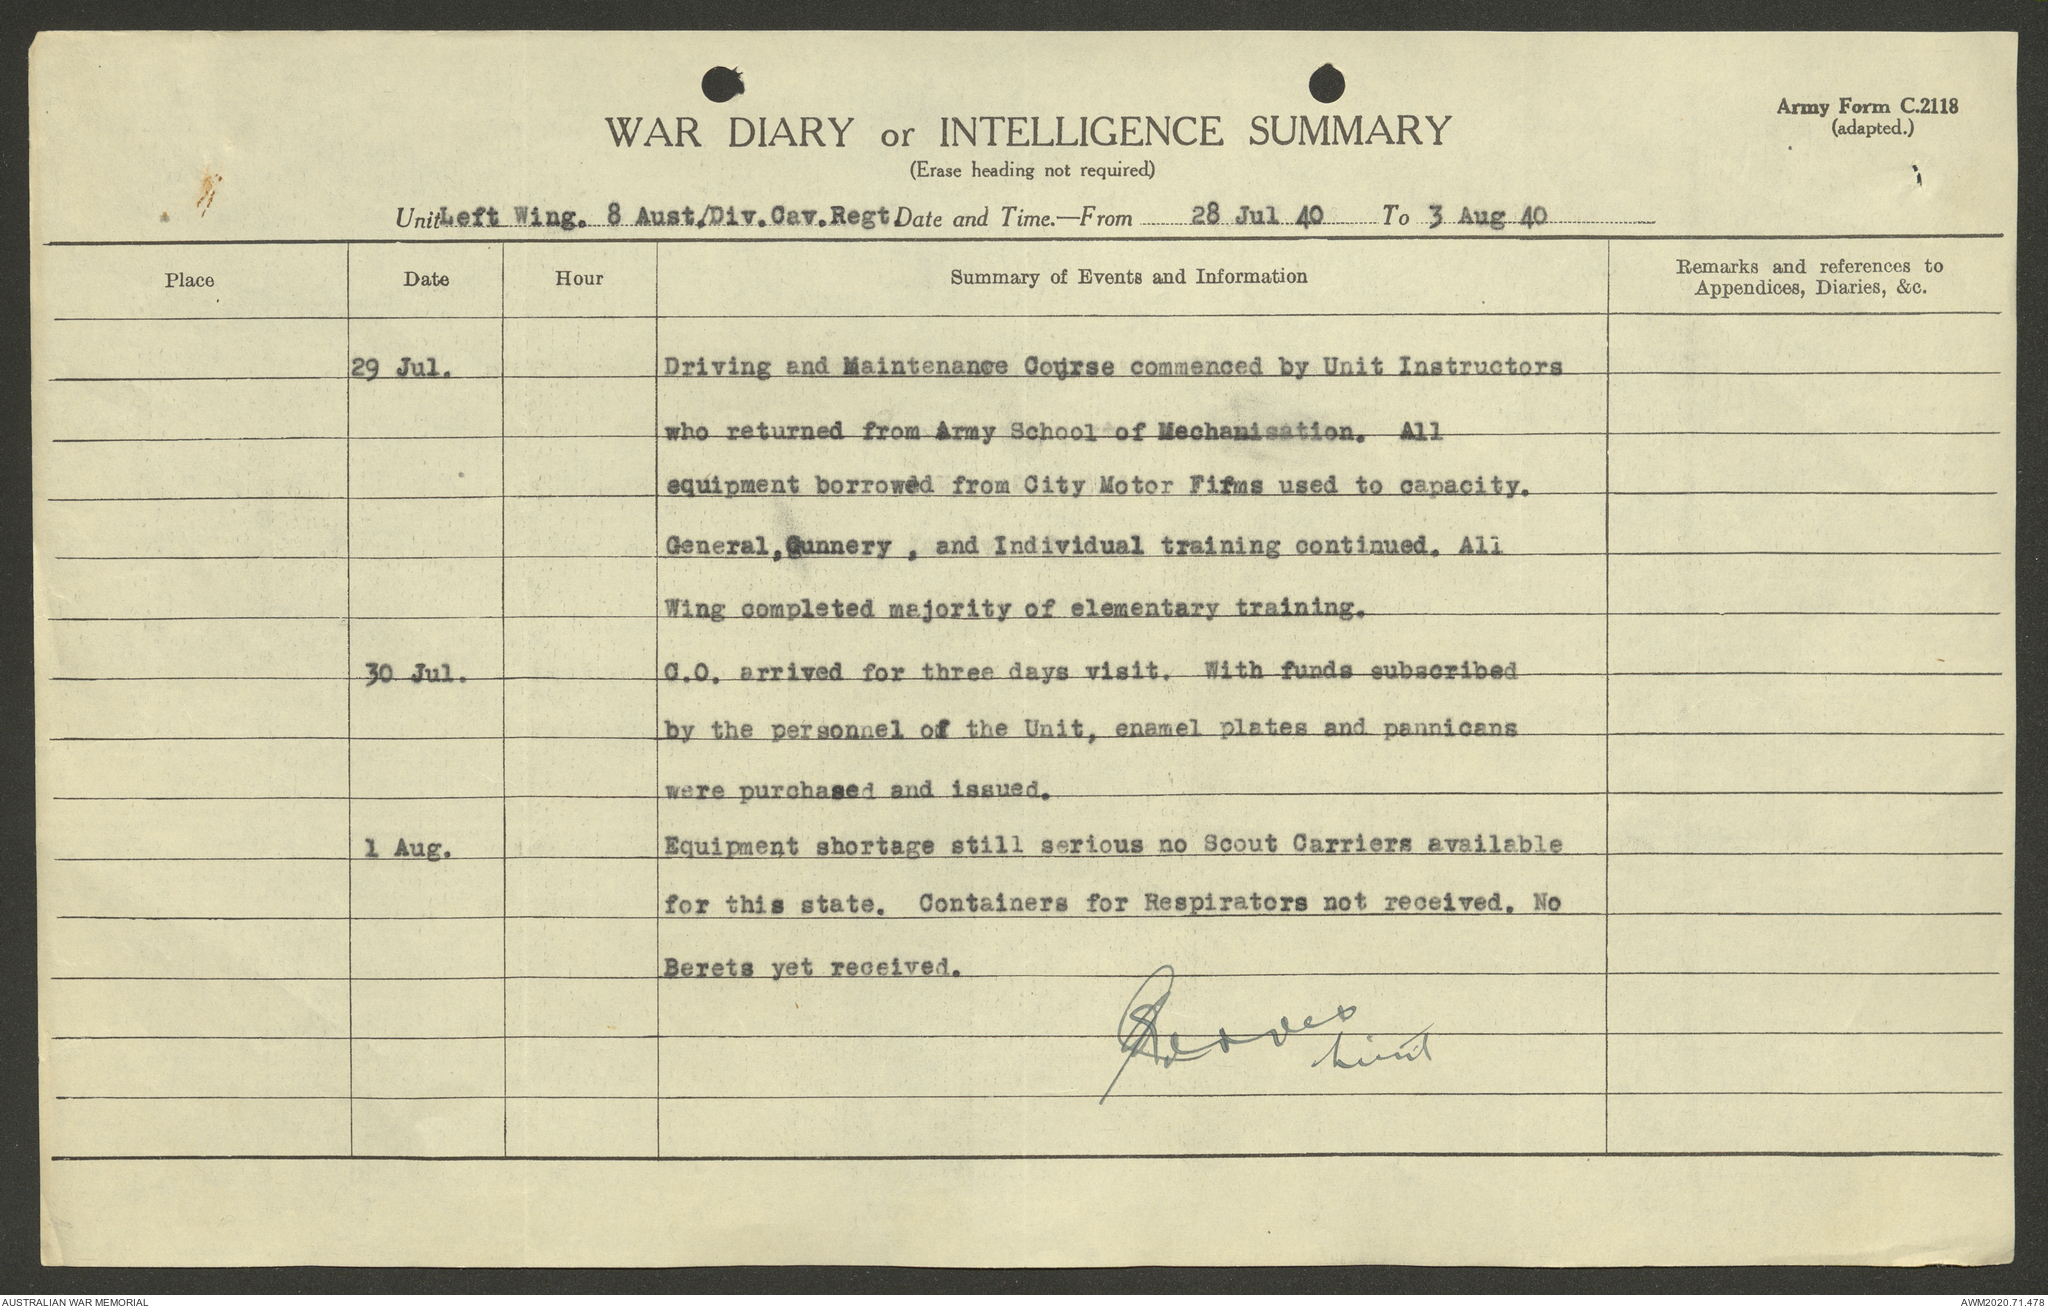 Army Form C.2118
(adapted.)
WAR DIARY or INTELLIGENCE SUMMARY
(Erase heading not required)
Unit Left Wing. 8 Aust./Div.Cav.Regt. Date and Time.—From 28 Jul 40 To 3 Aug 40
Place Date Hour Summary of Events and Information Remarks and references to
Appendices, Diaries, &c.
29 Jul. Driving and Maintenance Course commenced by Unit Instructors
who returned from Army School of Mechanisation. All
equipment borrowed from City Motor Firms used to capacity.
General,Gunnery , and Individual training continued. All
Wing completed majority of elementary training.
30 Jul. C.O. arrived for three days visit. With funds subscribed
by the personnel of the Unit, enamel plates and pannicans
were purchased and issued.
1 Aug. Equipment shortage still serious no Scout Carriers available
for this state. Containers for Respirators not received. No
Berets yet received.
Lieut
AUSTRALIAN WAR MEMORIAL
AWM2020.71.478